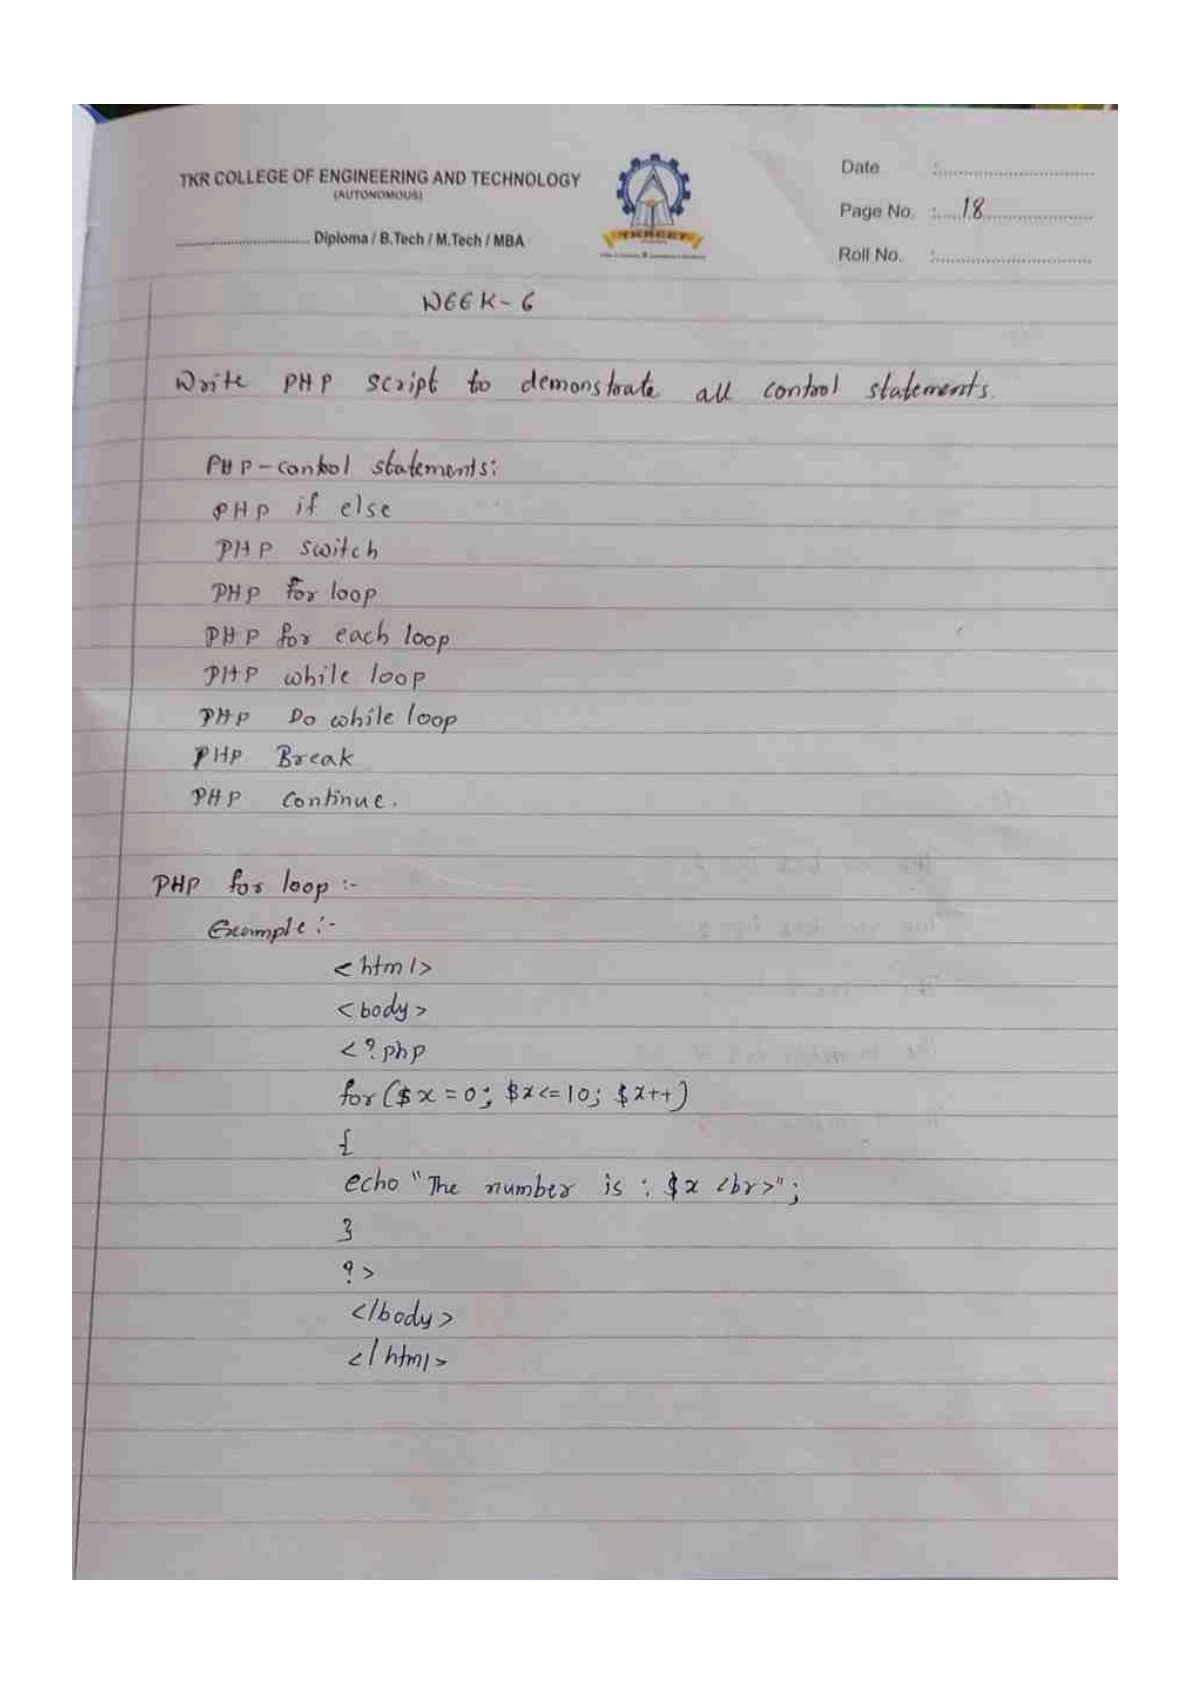 TKR COLLEGE OF ENGINEERING AND TECHNOLOGY
(AUTONOMOUS)
Diploma / B.Tech / M.Tech / MBA
TKRCET
Date :
Page No. : 18
Roll No. :
WEEK-6
Write PHP script to demonstrate all control statements.
PHP-control statements:
PHP if else
PHP switch
PHP for loop
PHP for each loop
PHP while loop
PHP Do while loop
PHP Break
PHP Continue.
PHP for loop :-
Example :-
<html>
<body>
<?php
for($x=0; $x<=10; $x++)
{
echo "The number is : $x <br>";
}
?>
</body>
</html>